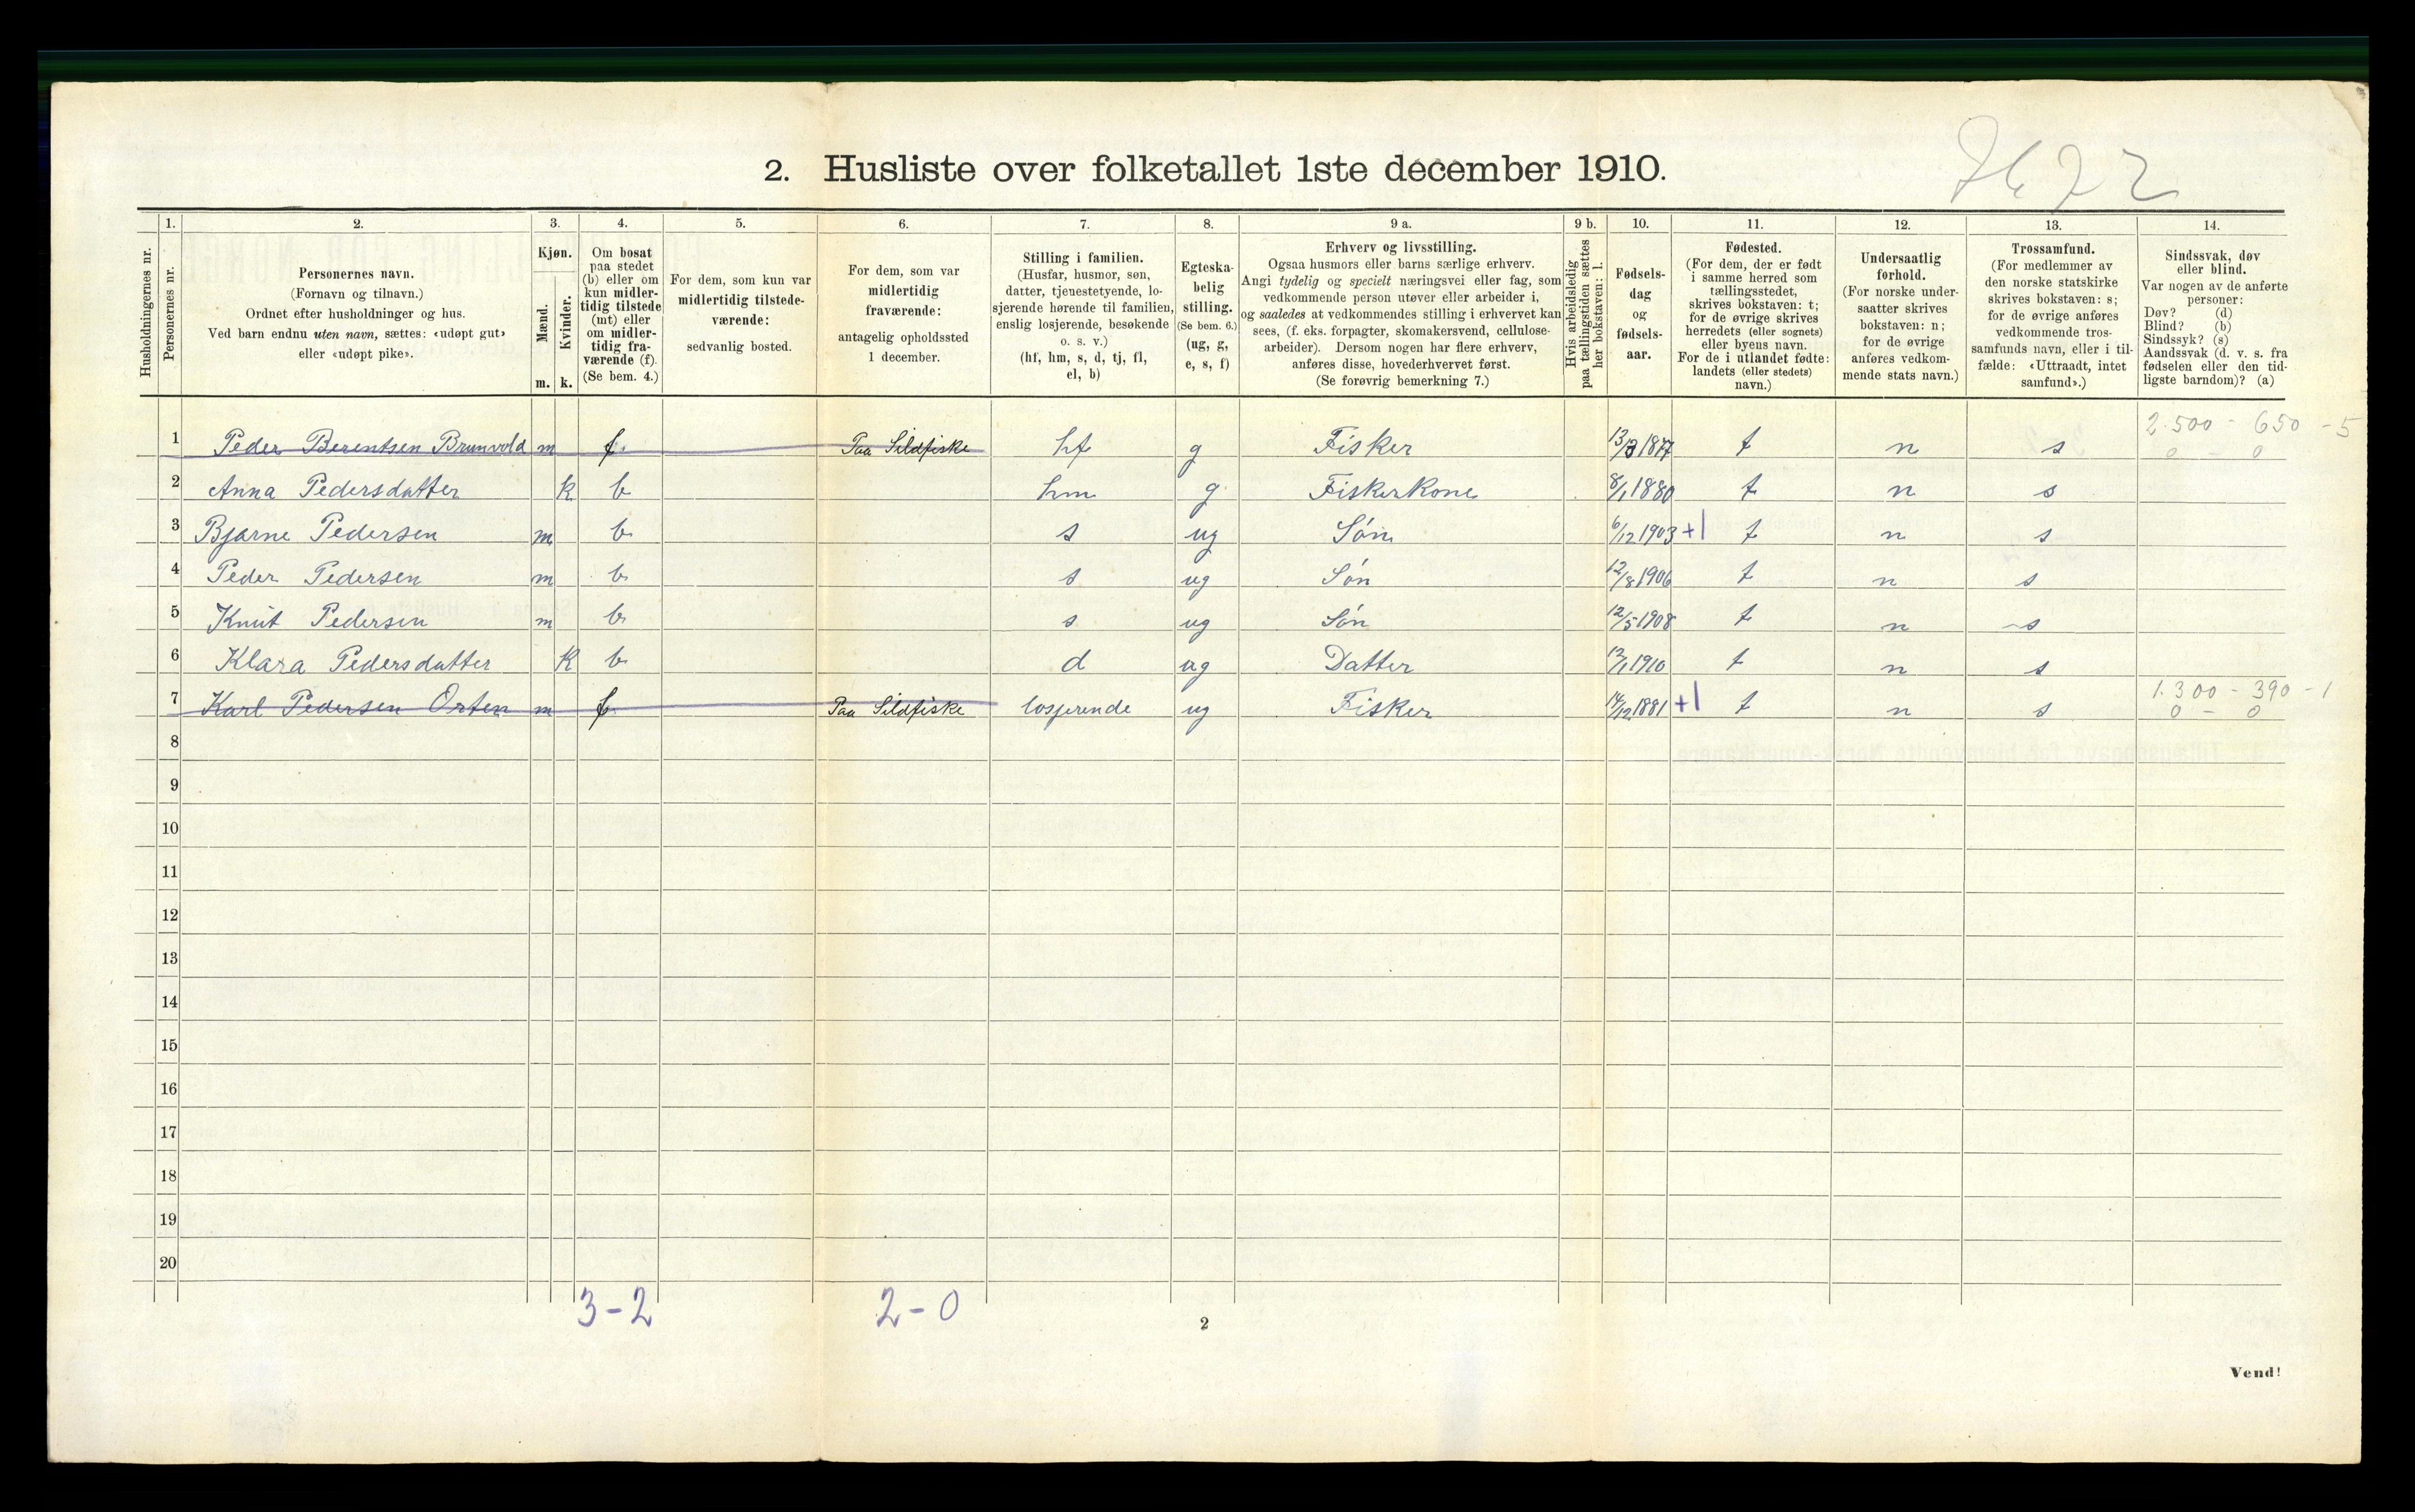 2. Husliste over folketallet 1ste december 1910.
Husholdningernes nr.
1. Personernes nr.
2. Personernes navn.
(Fornavn og tilnavn.)
Ordnet efter husholdninger og hus.
Ved barn endnu uten navn, sættes: «udøpt gut»
eller «udøpt pike».
3. Kjøn.
Mænd. m.
Kvinder. k.
4. Om bosat
paa stedet
(b) eller om
kun midler-
tidig tilstede
(mt) eller
om midler-
tidig fra-
værende (f).
(Se bem. 4.)
5. For dem, som kun var
midlertidig tilstede-
værende:
sedvanlig bosted.
6. For dem, som var
midlertidig
fraværende:
antagelig opholdssted
1 december.
7. Stilling i familien.
(Husfar, husmor, søn,
datter, tjenestetyende, lo-
sjerende hørende til familien,
enslig losjerende, besøkende
o. s. v.)
(hf, hm, s, d, tj, fl,
el, b)
8. Egteska-
belig
stilling.
(Se bem. 6.)
(ug, g,
e, s, f)
9 a. Erhverv og livsstilling.
Ogsaa husmors eller barns særlige erhverv.
Angi tydelig og specielt næringsvei eller fag, som
vedkommende person utøver eller arbeider i,
og saaledes at vedkommendes stilling i erhvervet kan
sees, (f. eks. forpagter, skomakersvend, cellulose-
arbeider). Dersom nogen har flere erhverv,
anføres disse, hovederhvervet først.
(Se forøvrig bemerkning 7.)
9 b. Hvis arbeidsledig
paa tællingstiden sættes
her bokstaven: l.
10. Fødsels-
dag
og
fødsels-
aar.
11. Fødested.
(For dem, der er født
i samme herred som
tællingsstedet,
skrives bokstaven: t;
for de øvrige skrives
herredets (eller sognets)
eller byens navn.
For de i utlandet fødte:
landets (eller stedets)
navn.)
12. Undersaatlig
forhold.
(For norske under-
saatter skrives
bokstaven: n;
for de øvrige
anføres vedkom-
mende stats navn.)
13. Trossamfund.
(For medlemmer av
den norske statskirke
skrives bokstaven: s;
for de øvrige anføres
vedkommende tros-
samfunds navn, eller i til-
fælde: «Uttraadt, intet
samfund».)
14. Sindssvak, døv
eller blind.
Var nogen av de anførte
personer:
Døv? (d)
Blind? (b)
Sindssyk? (s)
Aandssvak (d. v. s. fra
fødselen eller den tid-
ligste barndom)? (a)
2.500 - 650 - 5
1 Peder Berentsen Brunvold m f. Paa Sildfiske hf g Fisker 13/3 1877 t n s 0 - 0
2 Anna Pedersdatter k b hm g. Fiskerkone 8/1 1880 t n s
3 Bjarne Pedersen m b s ug Søn 6/12 1903 +1 t n s
4 Peder Pedersen m b s ug Søn 12/8 1906 t n s
5 Knut Pedersen m b s ug Søn 12/5 1908 t n s
6 Klara Pedersdatter k b d ug Datter 12/1 1910 t n s
1.300 - 390 - 1
7 Karl Pedersen Orten m f Paa Sildfiske losjerende ug Fisker 14/12 1881 +1 t n s 0 - 0
8
9
10
11
12
13
14
15
16
17
18
19
20
3 - 2 2 - 0
2
Vend!